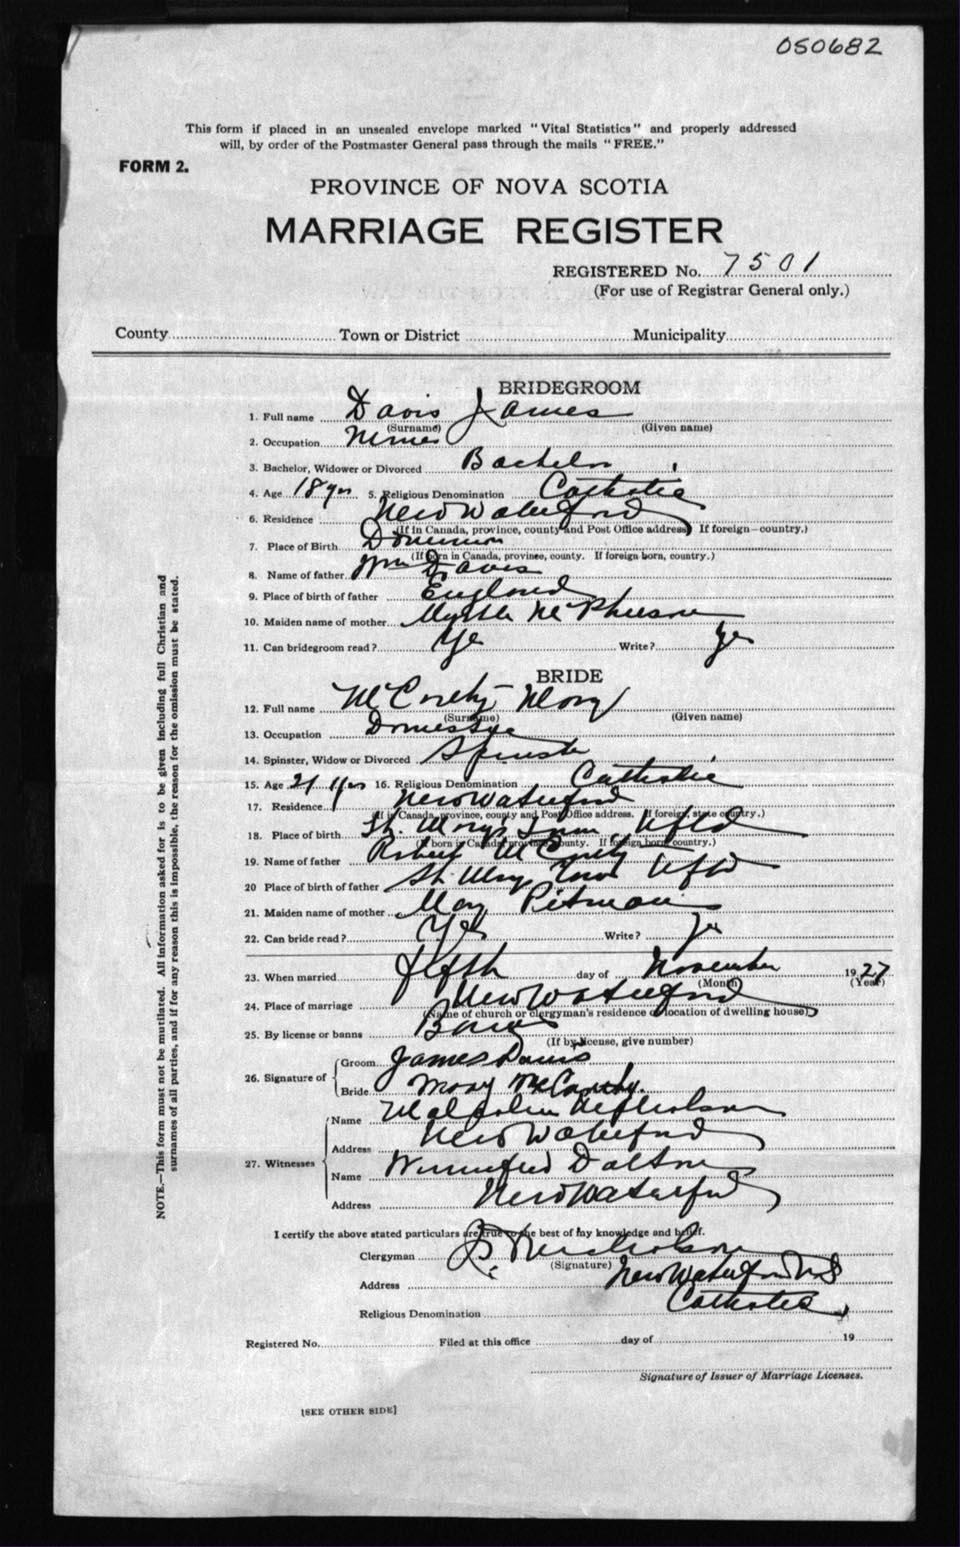 050682
This form if placed in an unsealed envelope marked "Vital Statistics" and properly addressed
will, by order of the Postmaster General pass through the mails "FREE."
FORM 2.
PROVINCE OF NOVA SCOTIA
MARRIAGE REGISTER
REGISTERED No. 7501
(For use of Registrar General only.)
County Town or District Municipality
BRIDEGROOM
1. Full name Davis James
(Surname) (Given name)
2. Occupation
3. Bachelor, Widower or Divorced Bachelor
4. Age 18 yrs 5. Religious Denomination Catholic
6. Residence New Waterford
(If in Canada, province, county and Post Office address) If foreign—country.)
7. Place of Birth Dominion
(If born in Canada, province, county. If foreign born, country.)
8. Name of father Wm Davis
9. Place of birth of father England
10. Maiden name of mother Myrtle McPherson
11. Can bridegroom read? Yes Write? Yes
BRIDE
12. Full name Mary
(Surname) (Given name)
13. Occupation Domestic
14. Spinster, Widow or Divorced Spinster
15. Age 21 Yrs 16. Religious Denomination Catholic
17. Residence New Waterford
(If in Canada, province, county and Post Office address. If foreign, state country.)
18. Place of birth St. Marys Nfld
(If born in Canada, province, county. If foreign born, country.)
19. Name of father Robert
20 Place of birth of father St. Mary Nfld
21. Maiden name of mother May Pitman
22. Can bride read? Yes Write? Yes
23. When married fifth day of November 1927
(Month) (Year)
24. Place of marriage New Waterford
(Name of church or clergyman's residence or location of dwelling house)
25. By license or banns Banns
(If by license, give number)
26. Signature of Groom James Davis
Bride Mary McCarthy.
27. Witnesses Name Malcolm
Address New Waterford
Name Winnifred Dalton
Address New Waterford
I certify the above stated particulars are true to the best of my knowledge and belief.
Clergyman Nicholson
(Signature)
Address New Waterford NS
Religious Denomination Catholic
Registered No. Filed at this office day of 19
Signature of Issuer of Marriage Licenses.
[SEE OTHER SIDE]
NOTE.—This form must not be mutilated. All information asked for is to be given including full Christian and
surnames of all parties, and if for any reason this is impossible, the reason for the omission must be stated.